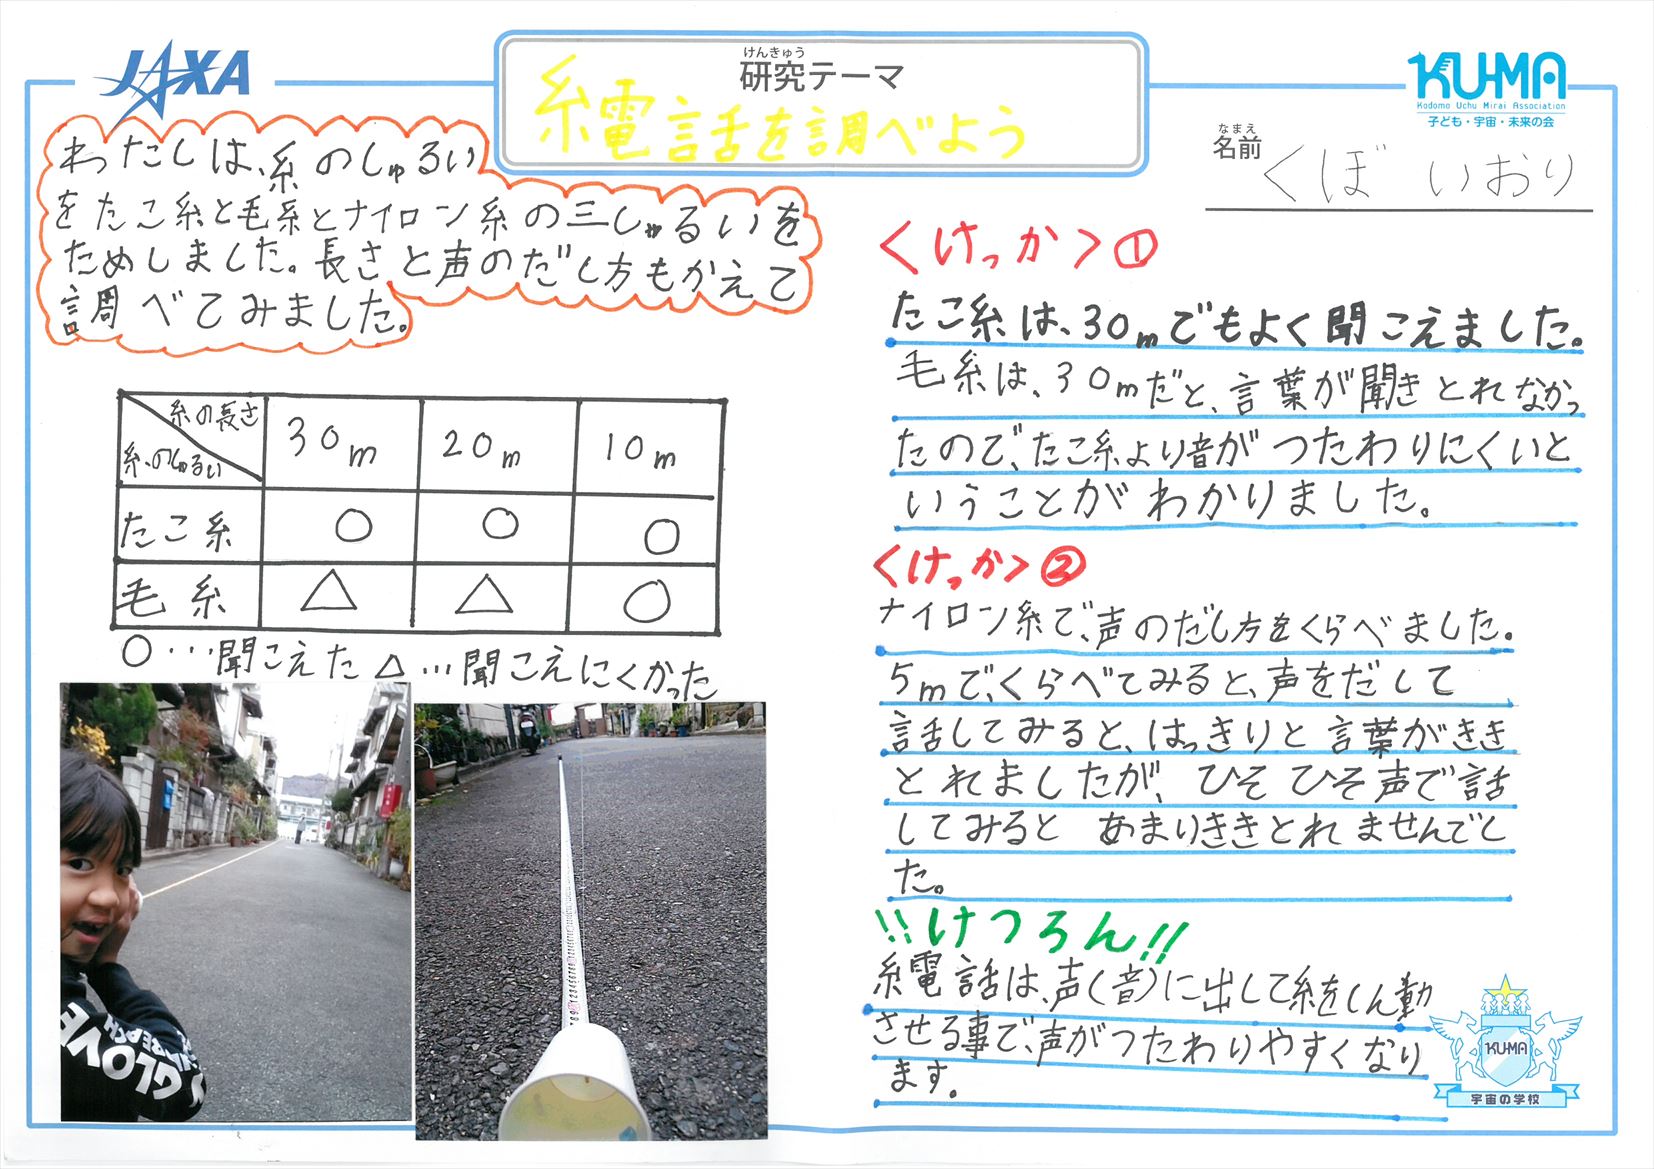 JAXA
けんきゅう
研究テーマ
糸電話を調べよう
KU-MA
Kodomo Uchu Mirai Association
子ども・宇宙・未来の会
なまえ
名前
くぼ いおり
わったしは、糸のしゅるい
をたこ糸と毛糸とナイロン糸の三しゅるいを
ためしました。長さと声のだし方もかえて
調べてみました。
糸の長さ
糸のしゅるい
30m 20m 10m
たこ糸 ○ ○ ○
毛糸 △ △ ○
○…聞こえた △…聞こえにくかった
GLOVE
<けっか>①
たこ糸は、30mでもよく聞こえました。
毛糸は、30mだと、言葉が聞きとれなかっ
たので、たこ糸より音がつたわりにくいと
いうことがわかりました。
<けっか>②
ナイロン糸で、声のだし方をくらべました。
5mで、くらべてみると、声をだして
話してみると、はっきりと言葉がきき
とれましたが、ひそひそ声で話
してみると あまりききとれませんでし
た。
!!けつろん!!
糸電話は、声(音)に出して糸をしん動
させる事で、声がつたわりやすくなり
ます。
KU-MA
宇宙の学校